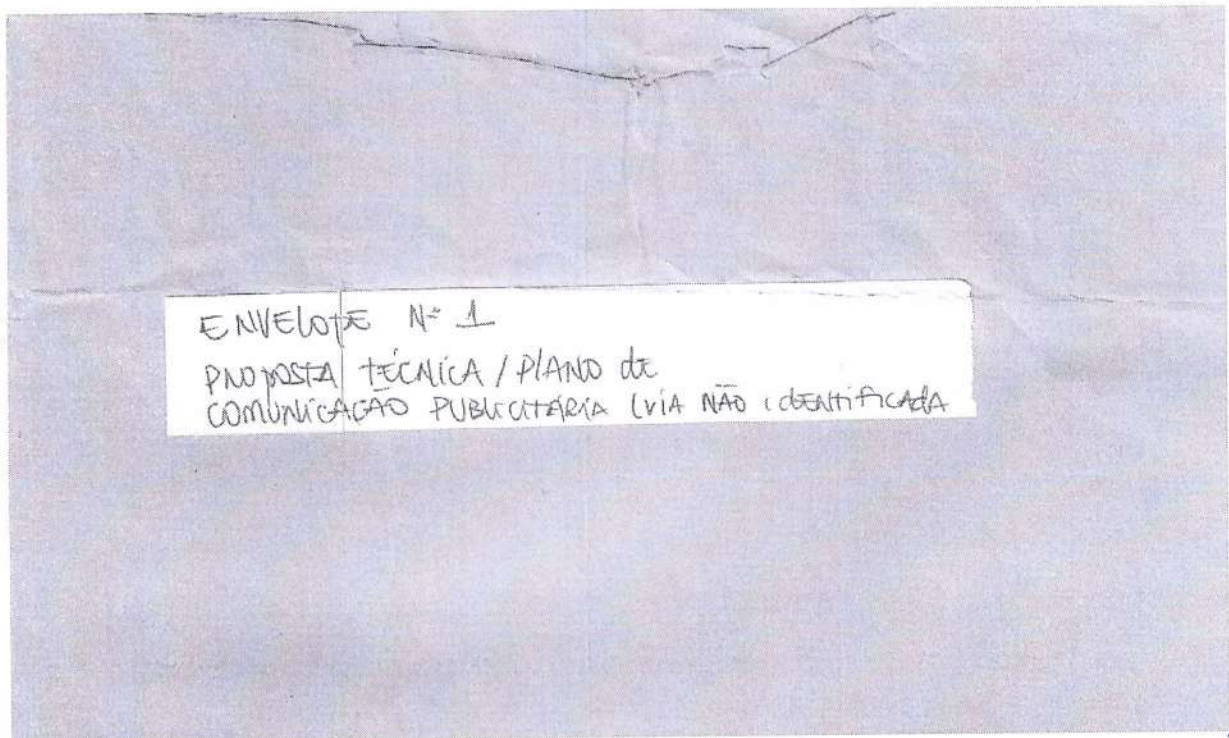 ENVELOPE Nº 1
PROPOSTA TÉCNICA / PLANO de
COMUNICAÇÃO PUBLICITÁRIA (VIA NÃO IDENTIFICADA